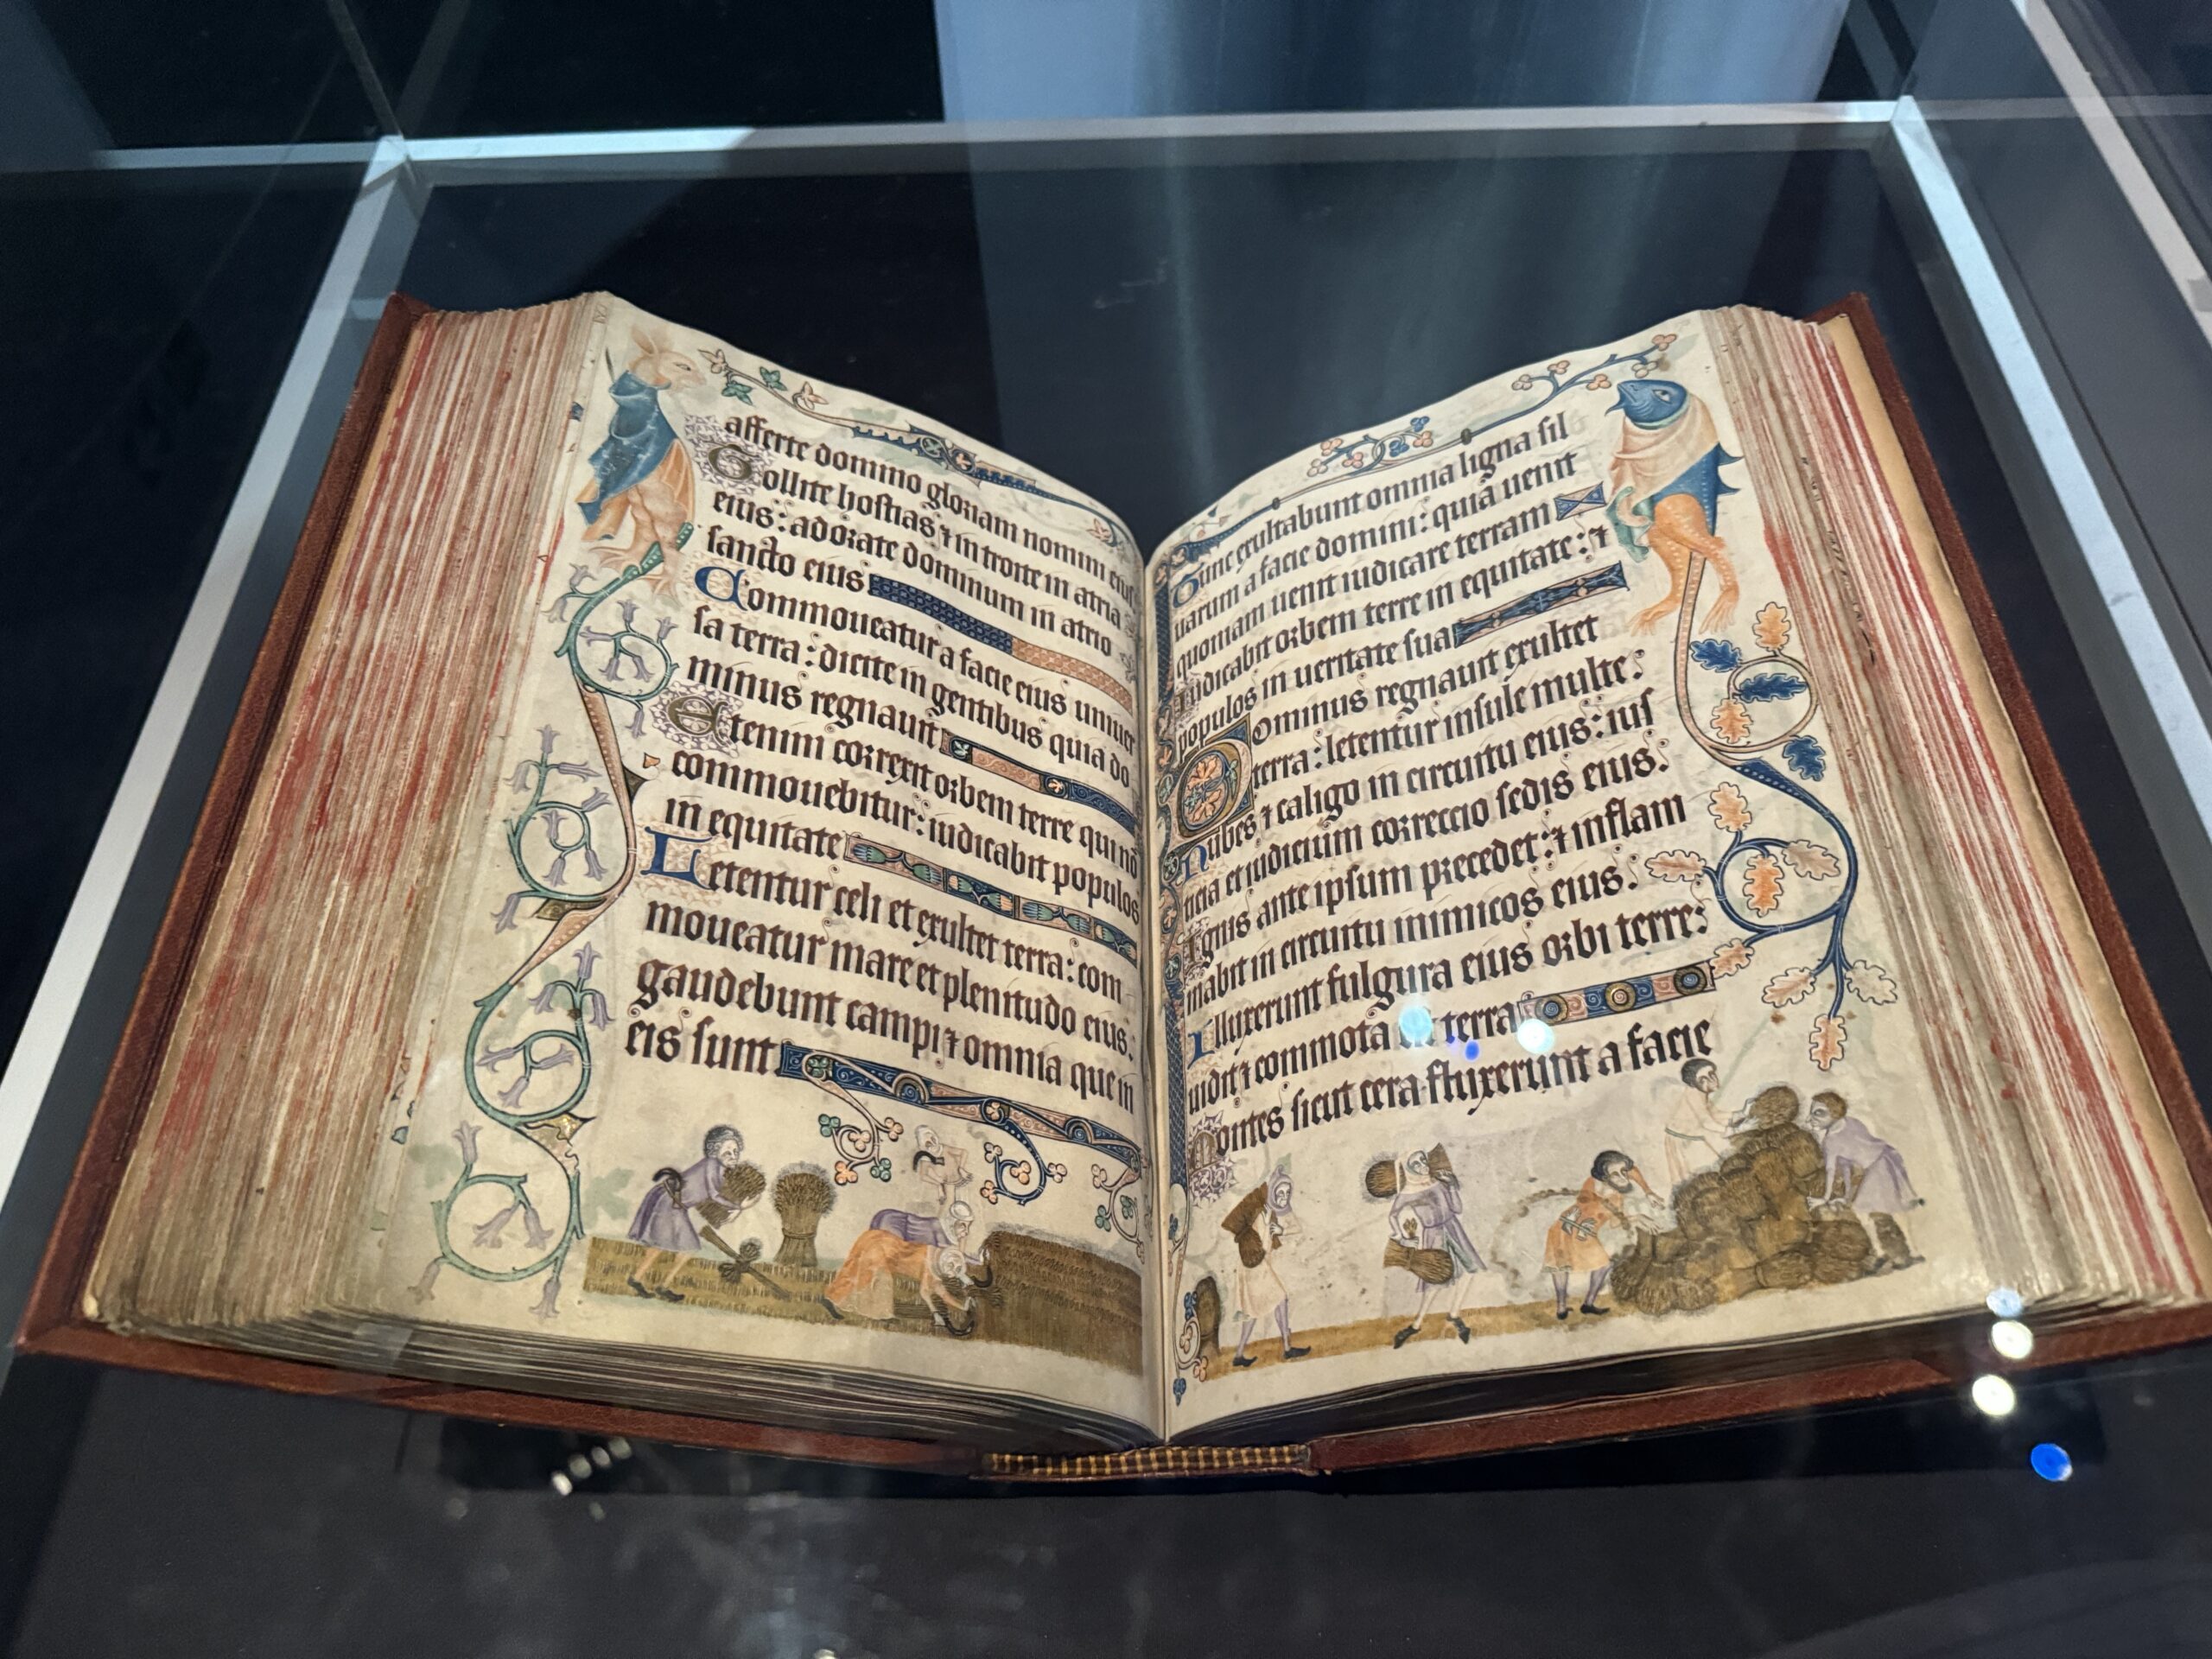 afferte domino gloriam nomini eius
Tollite hostias ⁊ introite in atria
eius: adorate dominum in atrio
sancto eius
Commoueatur a facie eius uniuer
sa terra: dicite in gentibus quia do
minus regnauit
Etenim correxit orbem terre qui nō
commouebitur: iudicabit populos
in equitate
Letentur celi et exultet terra: com
moueatur mare et plenitudo eius:
gaudebunt campi ⁊ omnia que in
eis sunt
Tunc exultabunt omnia ligna sil
uarum a facie domini: quia uenit
quoniam uenit iudicare terram
Iudicabit orbem terre in equitate: ⁊
populos in ueritate sua
Dominus regnauit exultet
terra: letentur insule multe:
Nubes ⁊ caligo in circuitu eius: ius
ticia et iudicium correccio sedis eius:
Ignis ante ipsum precedet: ⁊ inflam
mabit in circuitu inimicos eius:
Illuxerunt fulgura eius orbi terre:
uidit ⁊ commota est terra
Montes sicut cera fluxerunt a facie